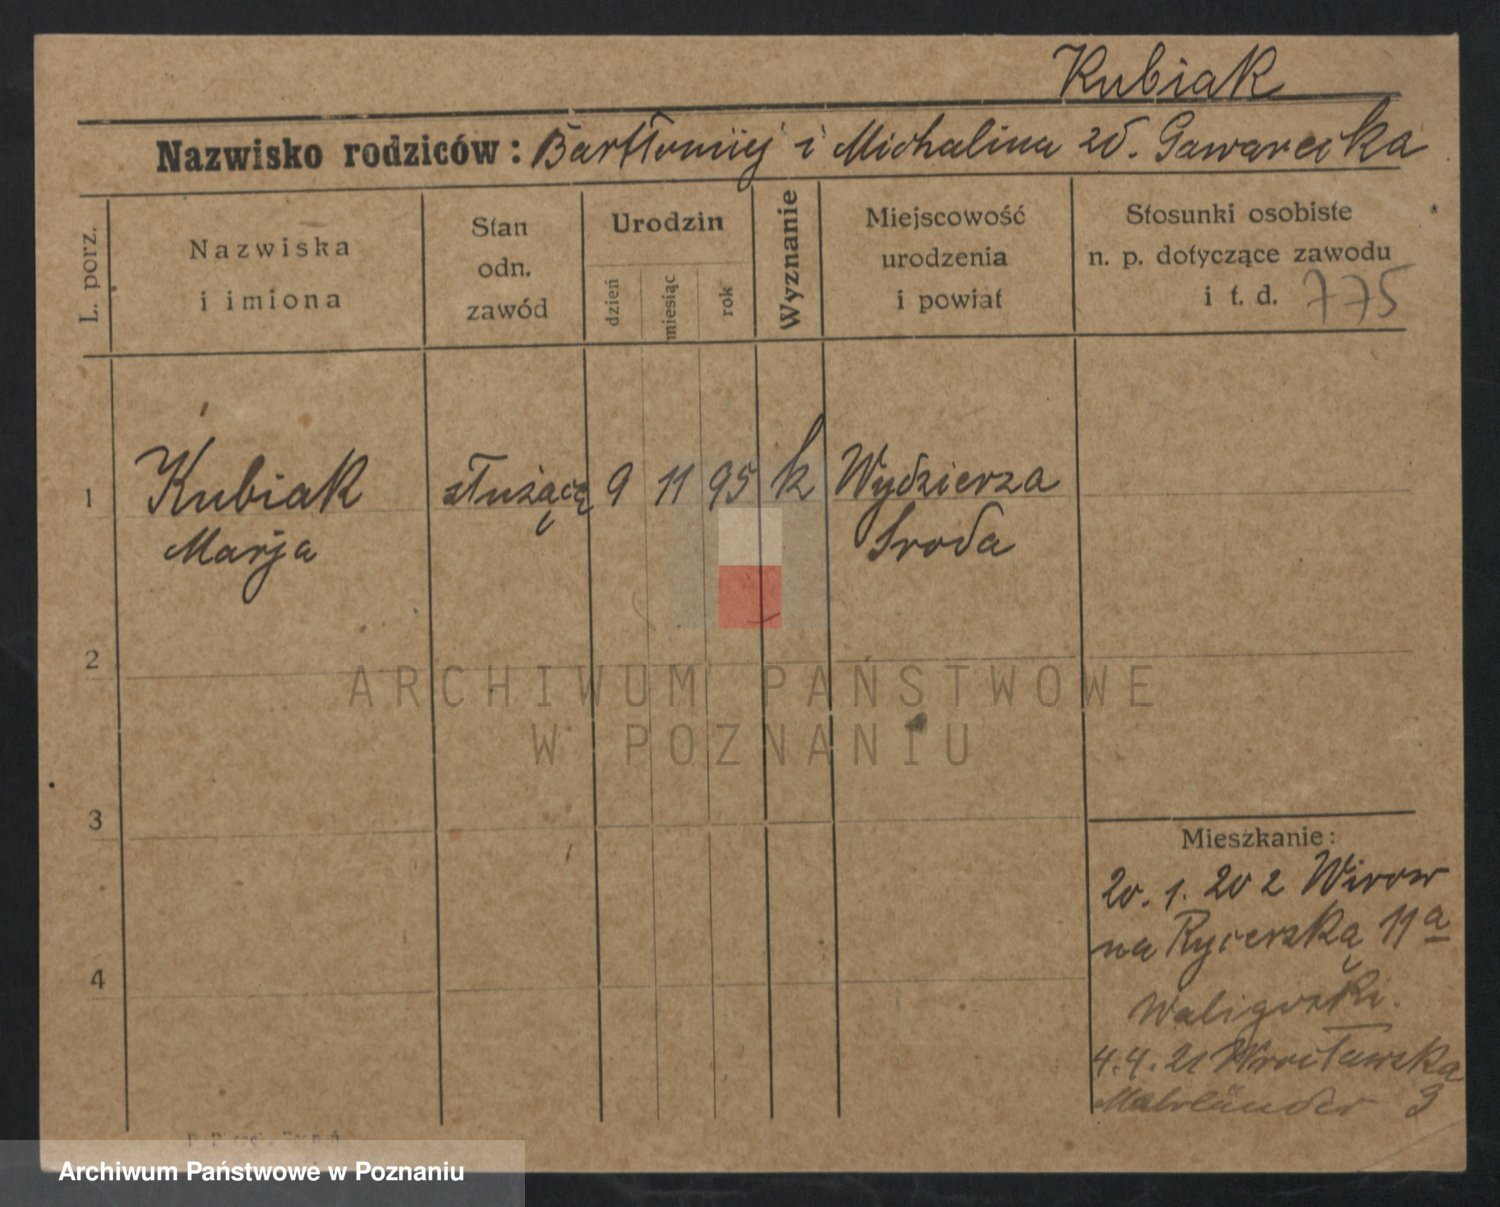 Kubiak
Nazwisko rodziców: Bartłomiej i Michalina zd. Gawarecka
L. porz.
Nazwiska
i imiona
Stan
odn.
zawód
Urodzin
dzień
miesiąc
rok
Wyznanie
Miejscowość
urodzenia
i powiat
Stosunki osobiste
n. p. dotyczące zawodu
i t. d. 775
1 Kubiak służącą 9 11 95 k Wydzierza
Marja Sroda
2
ARCHIWUM PAŃSTWOWE
W POZNANIU
3
Mieszkanie:
20. 1. 20 z Wirow
na Rycerską 11a
4
Waligorski.
4.4.21 Wrocławska
3
Archiwum Państwowe w Poznaniu